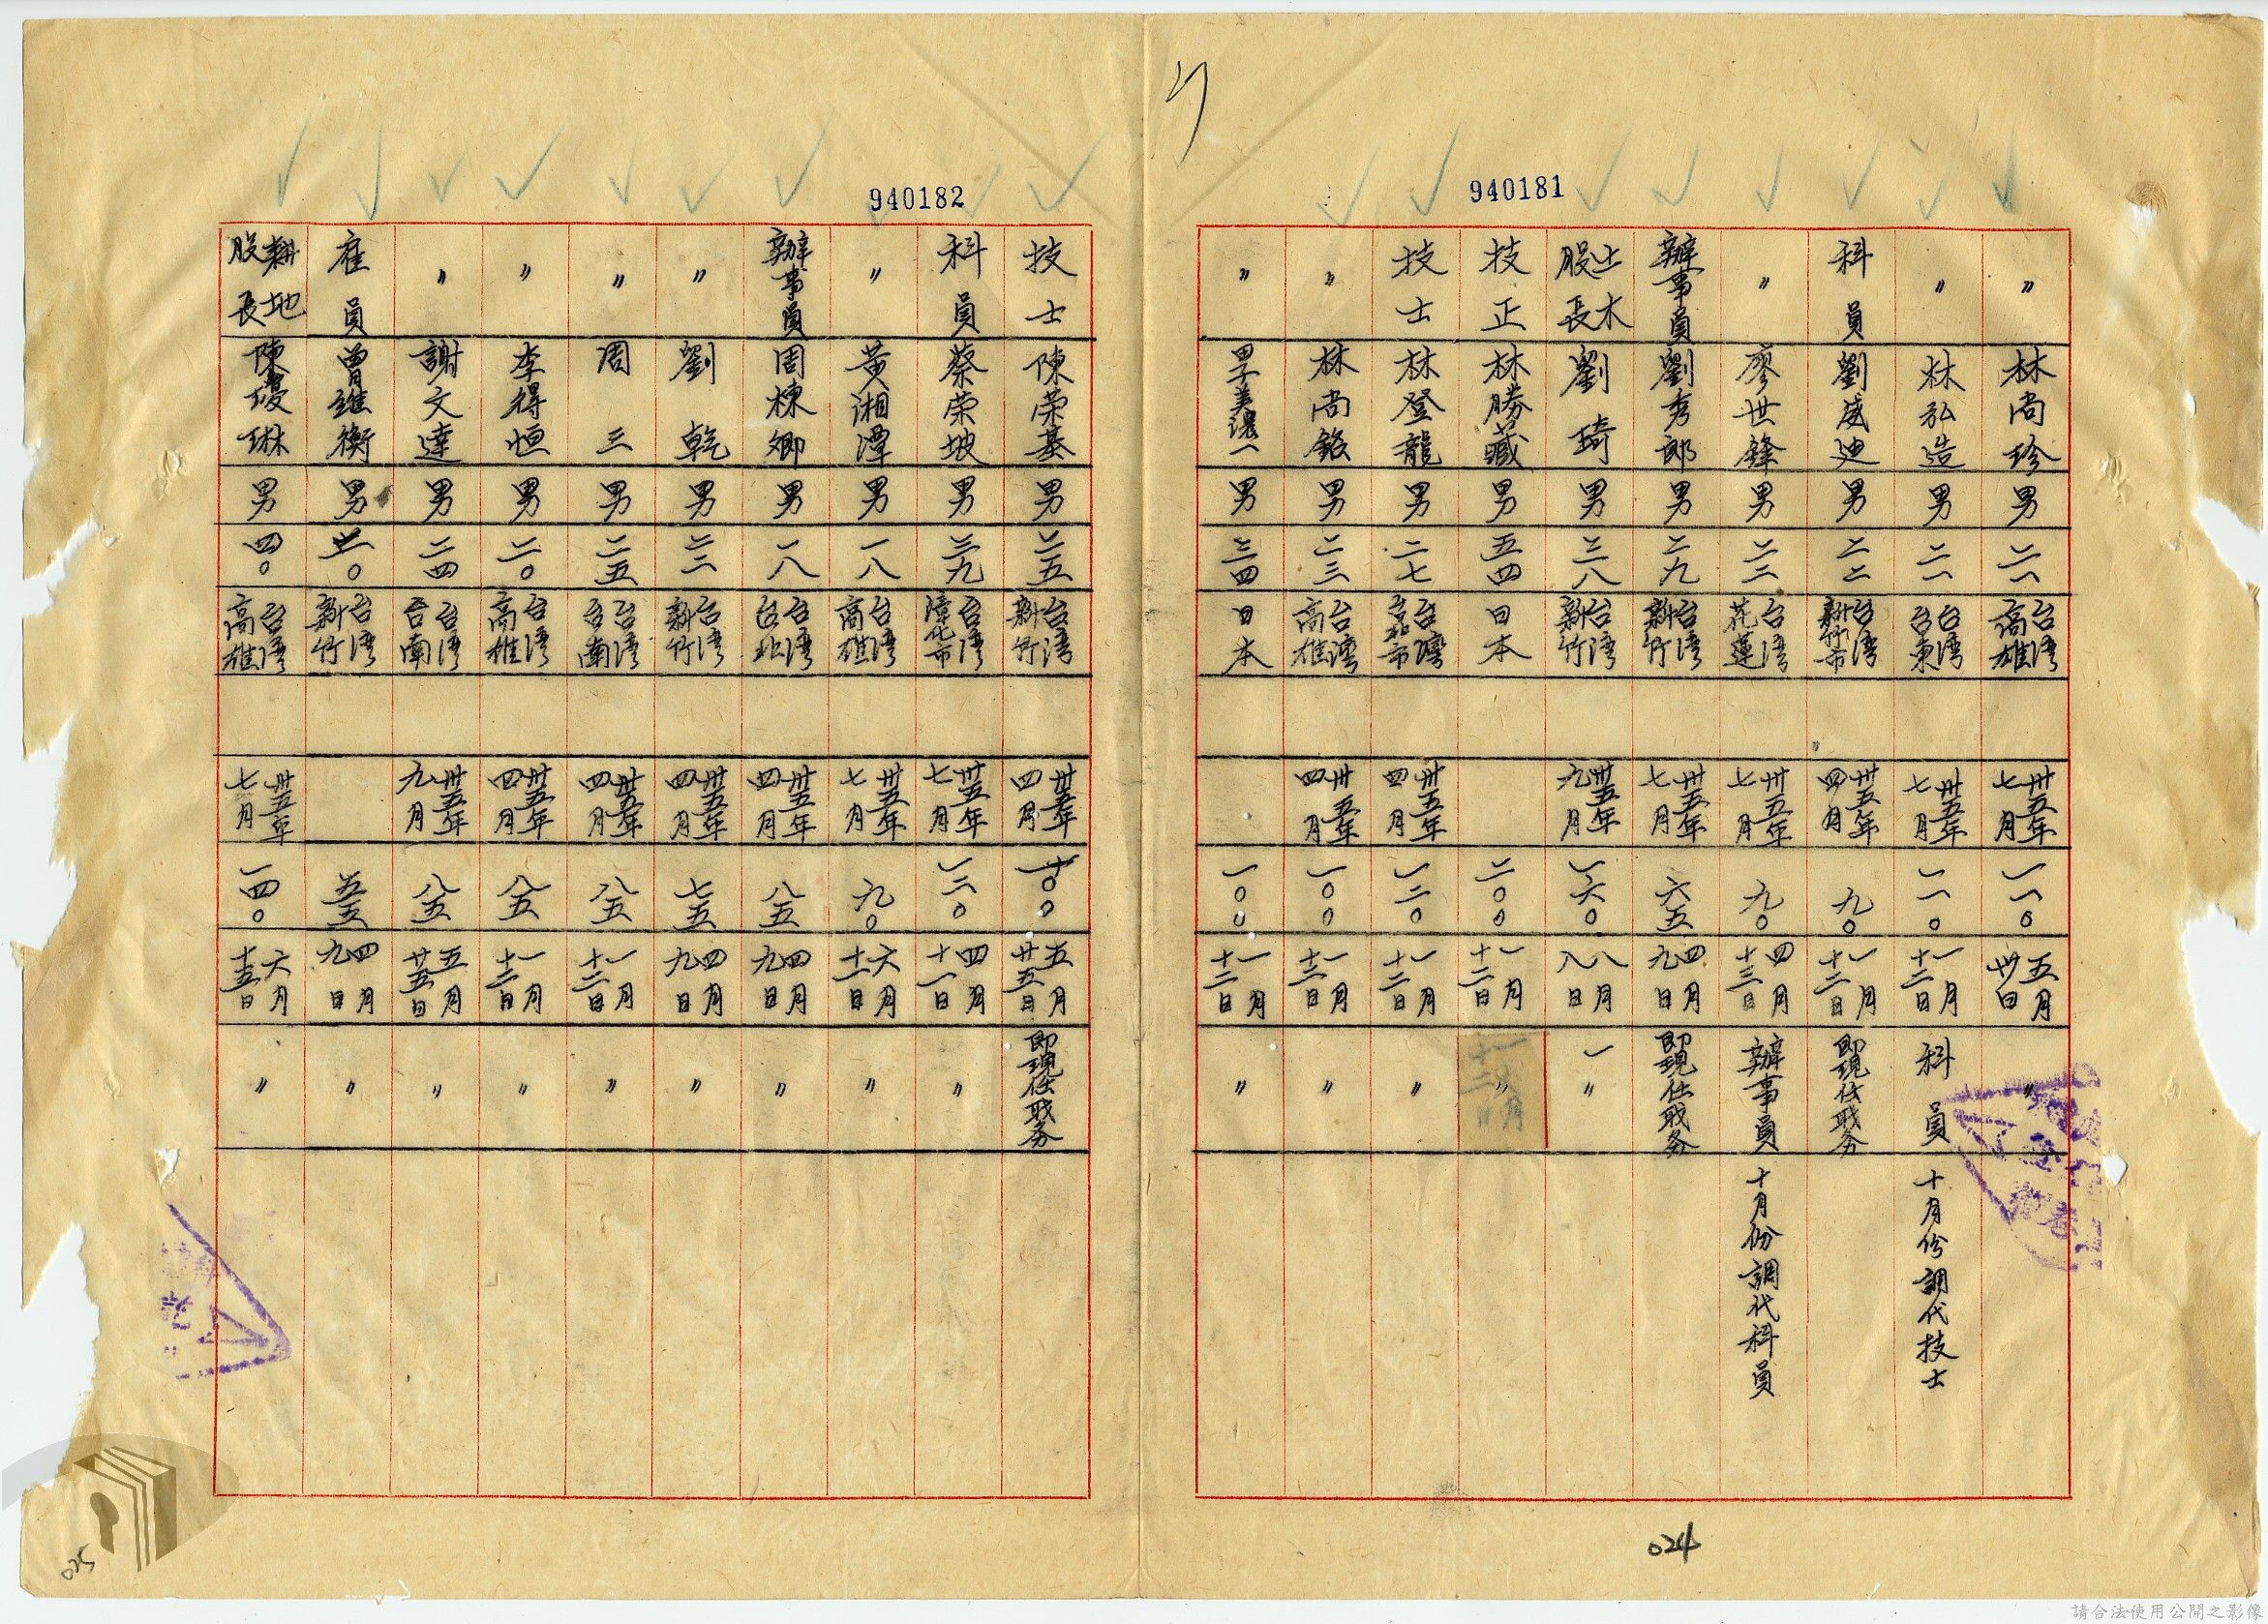 940181
〃 林尚珍 男 二一 台湾高雄 卅五年七月 一一〇 五月卅日 〃
〃 林弘造 男 二一 台湾台東 卅五年七月 一一〇 一月十二日 科員 十月份調代技士
科員 劉威迪 男 二二 台湾新竹市 卅五年四月 九〇 一月十二日 即現任職务
〃 廖世鋒 男 二二 台湾花蓮 卅五年七月 九〇 四月十三日 辦事員 十月份調代科員
辦事員 劉秀郎 男 二九 台湾新竹 卅五年七月 六五 四月九日 即現任職务
土木股長 劉琦 男 三八 台湾新竹 卅五年九月 一六〇 八月八日 〃
技正 林勝藏 男 五四 日本 二〇〇 一月十二日 〃
技士 林登龍 男 二七 台灣台北市 卅五年四月 一二〇 一月十二日 〃
〃 林尚 男 二三 台灣高雄 卅五年四月 一〇〇 一月十二日 〃
〃 男 三四 日本 一〇〇 一月十二日 〃
024
940182
技士 陳栄基 男 二五 台湾新竹 卅五年四月 一〇〇 五月廿五日 即現任職务
科員 蔡栄坡 男 三九 台湾漳化市 卅五年七月 一二〇 四月十一日 〃
〃 黃湘潭 男 一八 台湾高雄 卅五年七月 九〇 六月十二日 〃
辦事員 周棟卿 男 一八 台湾台北 卅五年四月 八五 四月九日 〃
〃 劉乾 男 三二 台湾新竹 卅五年四月 七五 四月九日 〃
〃 周三 男 二五 台湾台南 卅五年四月 八五 一月十二日 〃
〃 李得恒 男 二〇 台湾高雄 卅五年四月 八五 一月十二日 〃
〃 謝文達 男 二四 台湾台南 卅五年九月 八五 五月廿五日 〃
雇員 曾維衡 男 二〇 台湾新竹 五五 四月九日 〃
耕地股長 陳璦琳 男 四〇 台湾高雄 卅五年七月 一四〇 六月十五日 〃
025
請合法使用公開之影像